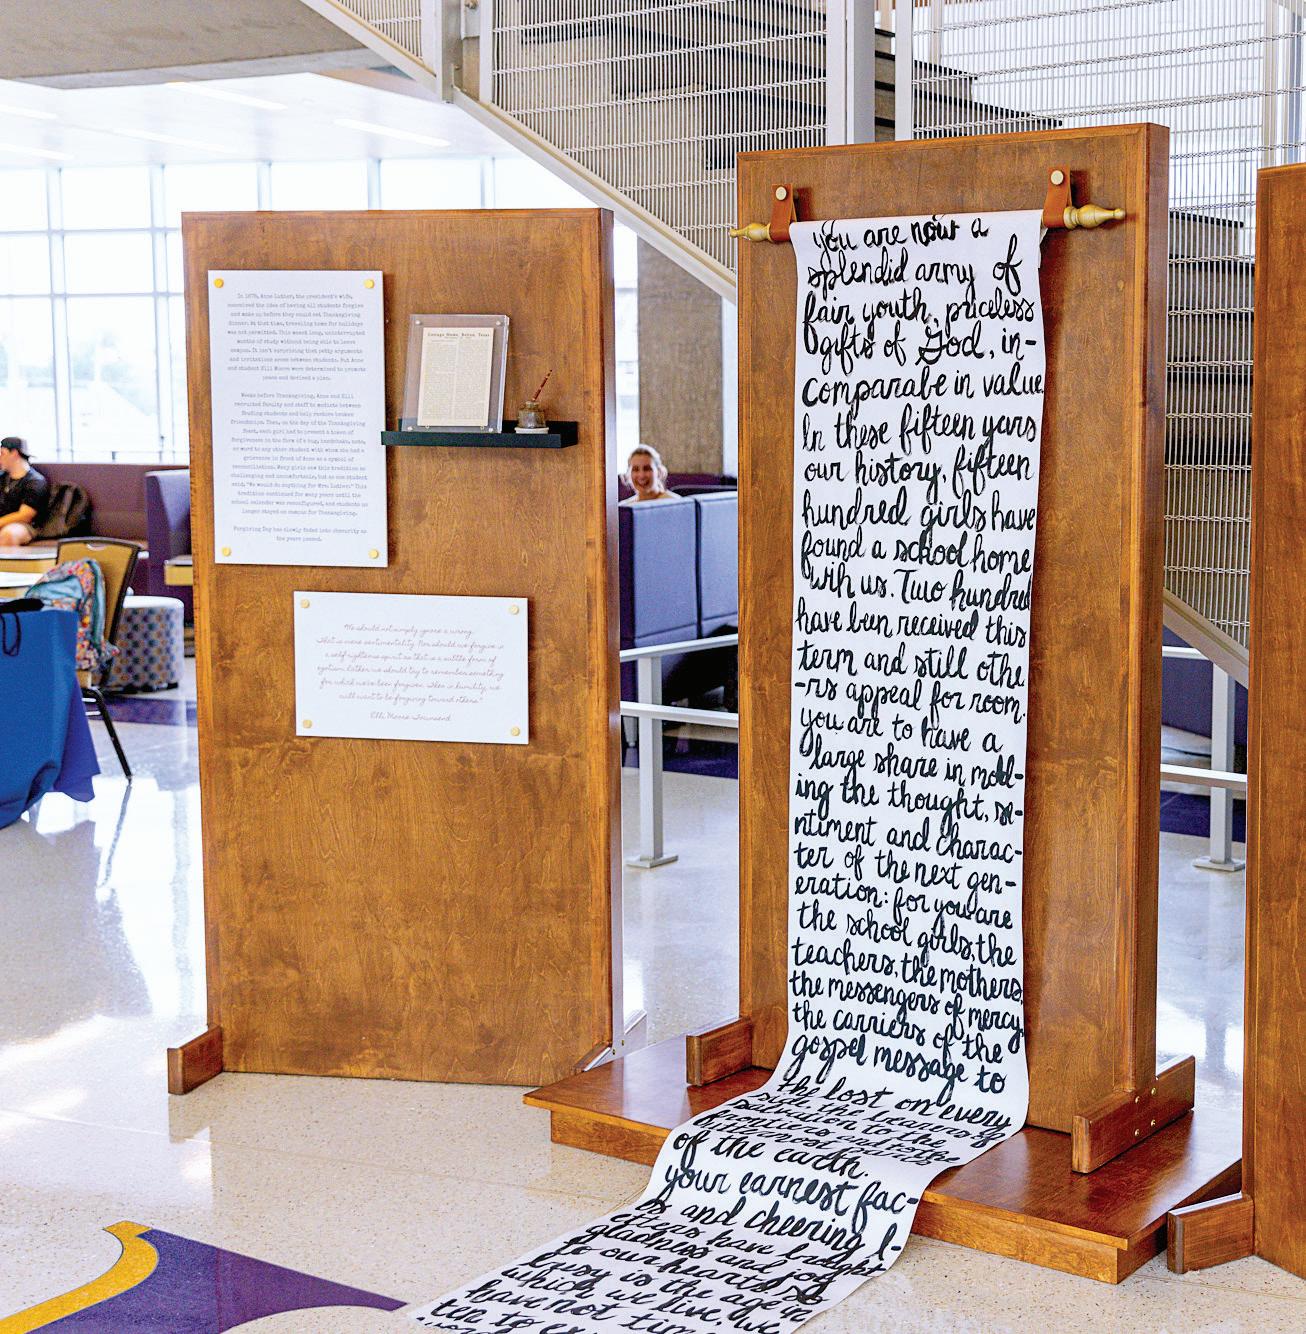 In 1878, Anne Luther, the president's wife,
conceived the idea of having all students forgive
and make up before they could eat Thanksgiving
dinner. At that time, traveling home for holidays
was not permitted. This meant long, uninterrupted
months of study without being able to leave
campus. It isn't surprising that petty arguments
and irritations arose between students. But Anne
and student Elli Moore were determined to promote
peace and devised a plan.
Weeks before Thanksgiving, Anne and Elli
recruited faculty and staff to mediate between
feuding students and help restore broken
friendships. Then, on the day of the Thanksgiving
feast, each girl had to present a token of
forgiveness in the form of a hug, handshake, note,
or word to any other student with whom she had a
grievance in front of Anne as a symbol of
reconciliation. Many girls saw this tradition as
challenging and uncomfortable, but as one student
said, "We would do anything for Mrs. Luther." This
tradition continued for many years until the
school calendar was reconfigured, and students no
longer stayed on campus for Thanksgiving.
Forgiving Day has slowly faded into obscurity as
the years passed.
Cottage Home, Belton, Texas
We should not simply ignore a wrong.
That is mere sentimentality. Nor should we forgive in
a self-righteous spirit as that is a subtle form of
egotism. Rather we should try to remember something
for which we've been forgiven. Then in humility, we
will want to be forgiving toward others."
Elli Moore Townsend
you are now a
splendid army of
fair youth, priceless
gifts of God, in-
comparabe in value.
In these fifteen years
our history, fifteen
hundred girls have
found a school home
wih us. Two hundred
have been received this
term and still othe
-rs appeal for room.
you are to have a
large share in mold-
ing the thought, se-
ntiment and charac-
ter of the next gen-
eration: for you are
the school girls, the
teachers, the mothers,
the messengers of mercy,
the carriers of the
gospel message to
the lost on every
side, the bearers of
salvation to the
frontiers and to the
uttermost parts
of the earth.
your earnest fac-
es and cheering l-
etters have brought
gladness and joy
to our hearts. So
busy is the age in
which we live, we
have not time